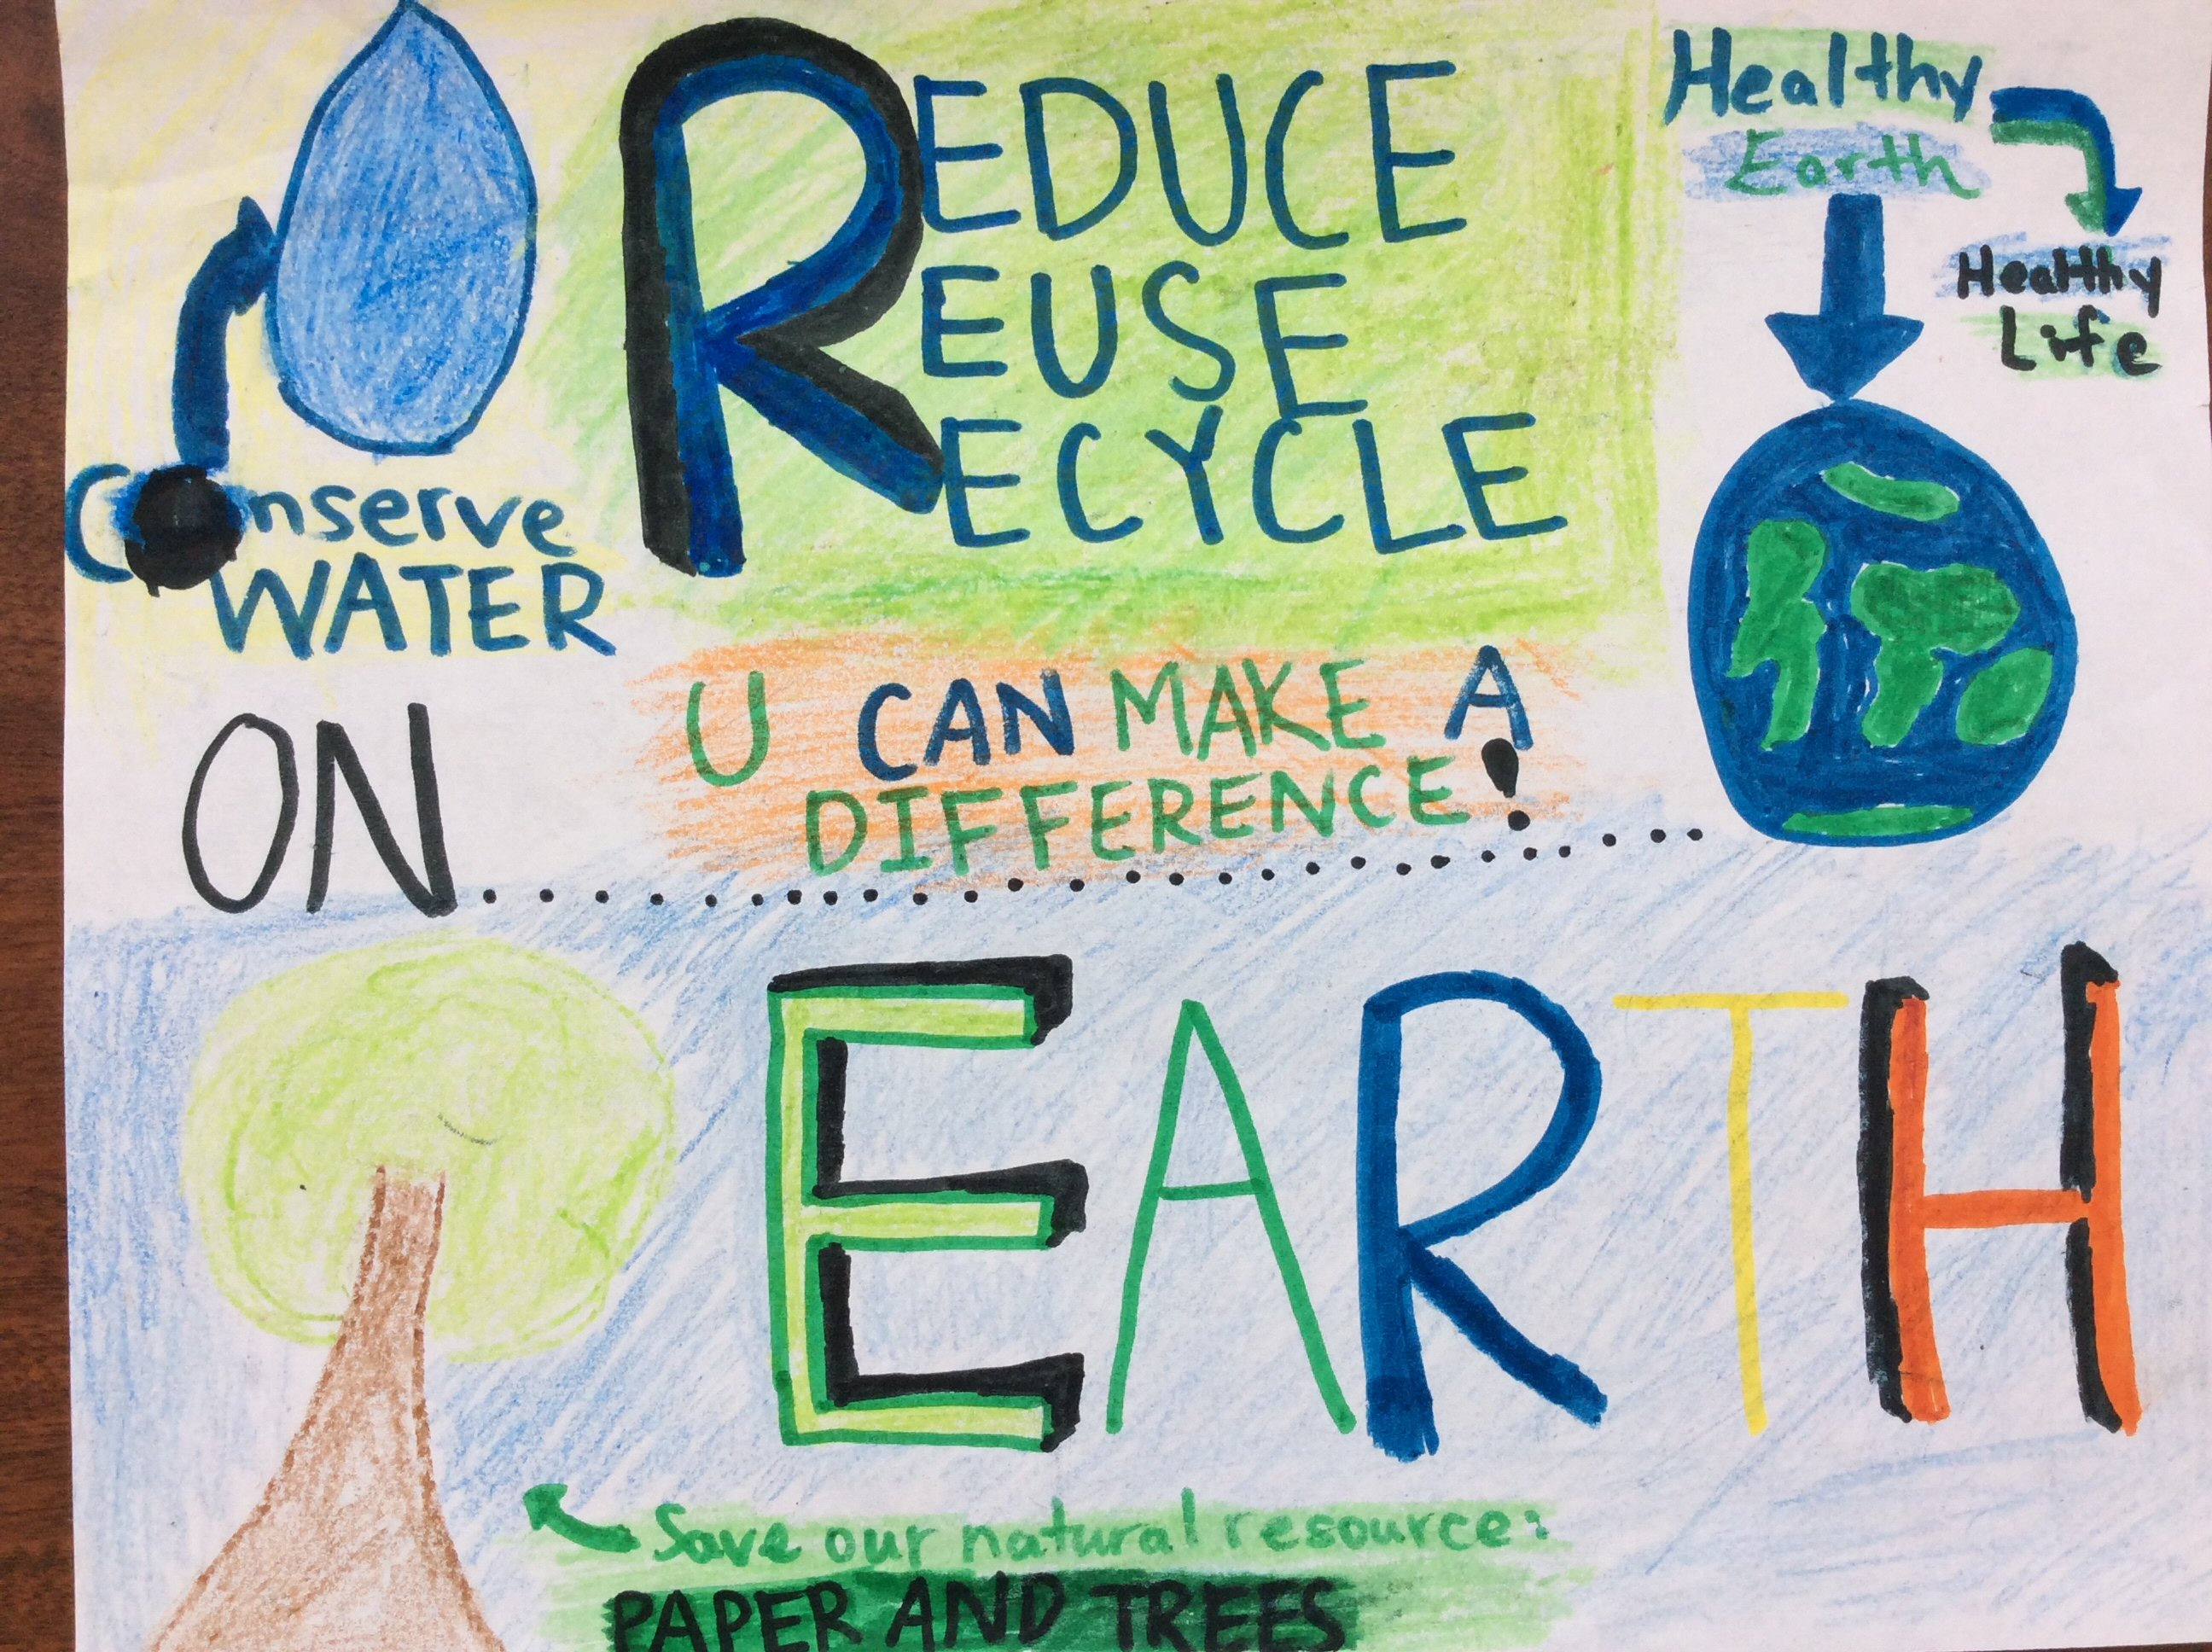 REDUCE
REUSE
RECYCLE
Healthy
Earth
Healthy
Life
Conserve
WATER
U CAN MAKE A
DIFFERENCE!
ON....................
EARTH
Save our natural resource:
PAPER AND TREES